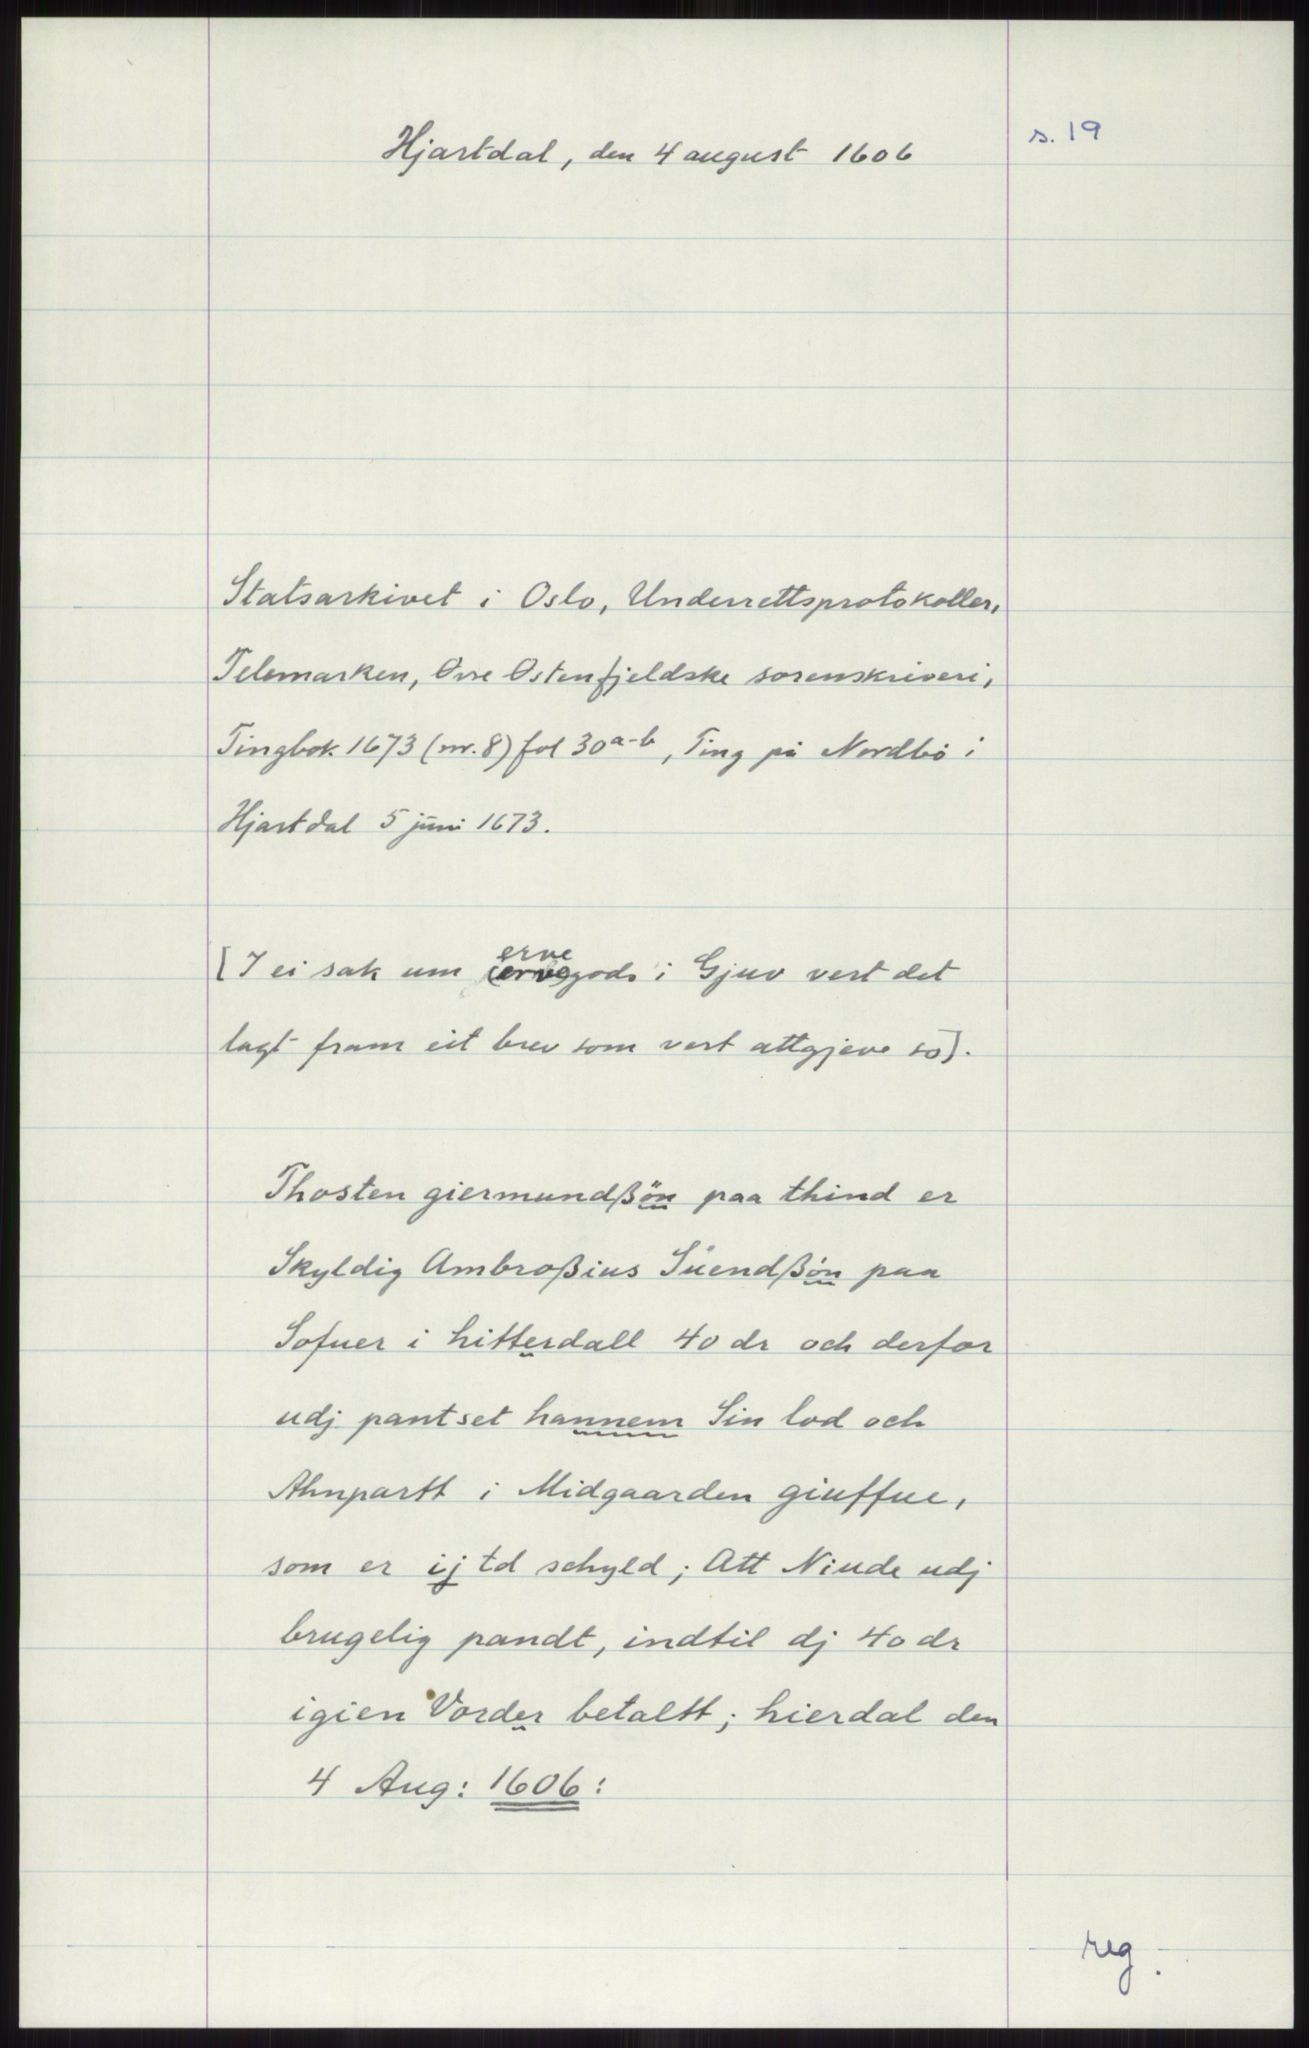 s. 19
Hjartdal, den 4 august 1606
Statsarkivet i Oslo, Underrettsprotokoller,
Telemarken, Øvre Østenfjeldske sorenskriveri,
Tingbok 1673 (nr. 8) fol 30a-b, Ting på Nordbö i
Hjartdal 5 juni 1673.
erve
[I ei sak um (erve)gods i Gjuv vert det
lagt fram eit brev som vert attgjeve so].
Thosten giermundßön paa thind er
Skyldig Ambroßius Süendßön paa
Sofuer i hitterdall 40 dr och derfor
udj pantset hannem Sin lod och
Ahnpartt i Midgaarden giuffue,
som er ij td schyld; Att Niude udj
brugelig pandt, indtil dj 40 dr
igien Vorder betaltt; hierdal den
4 Aug: 1606:
reg.